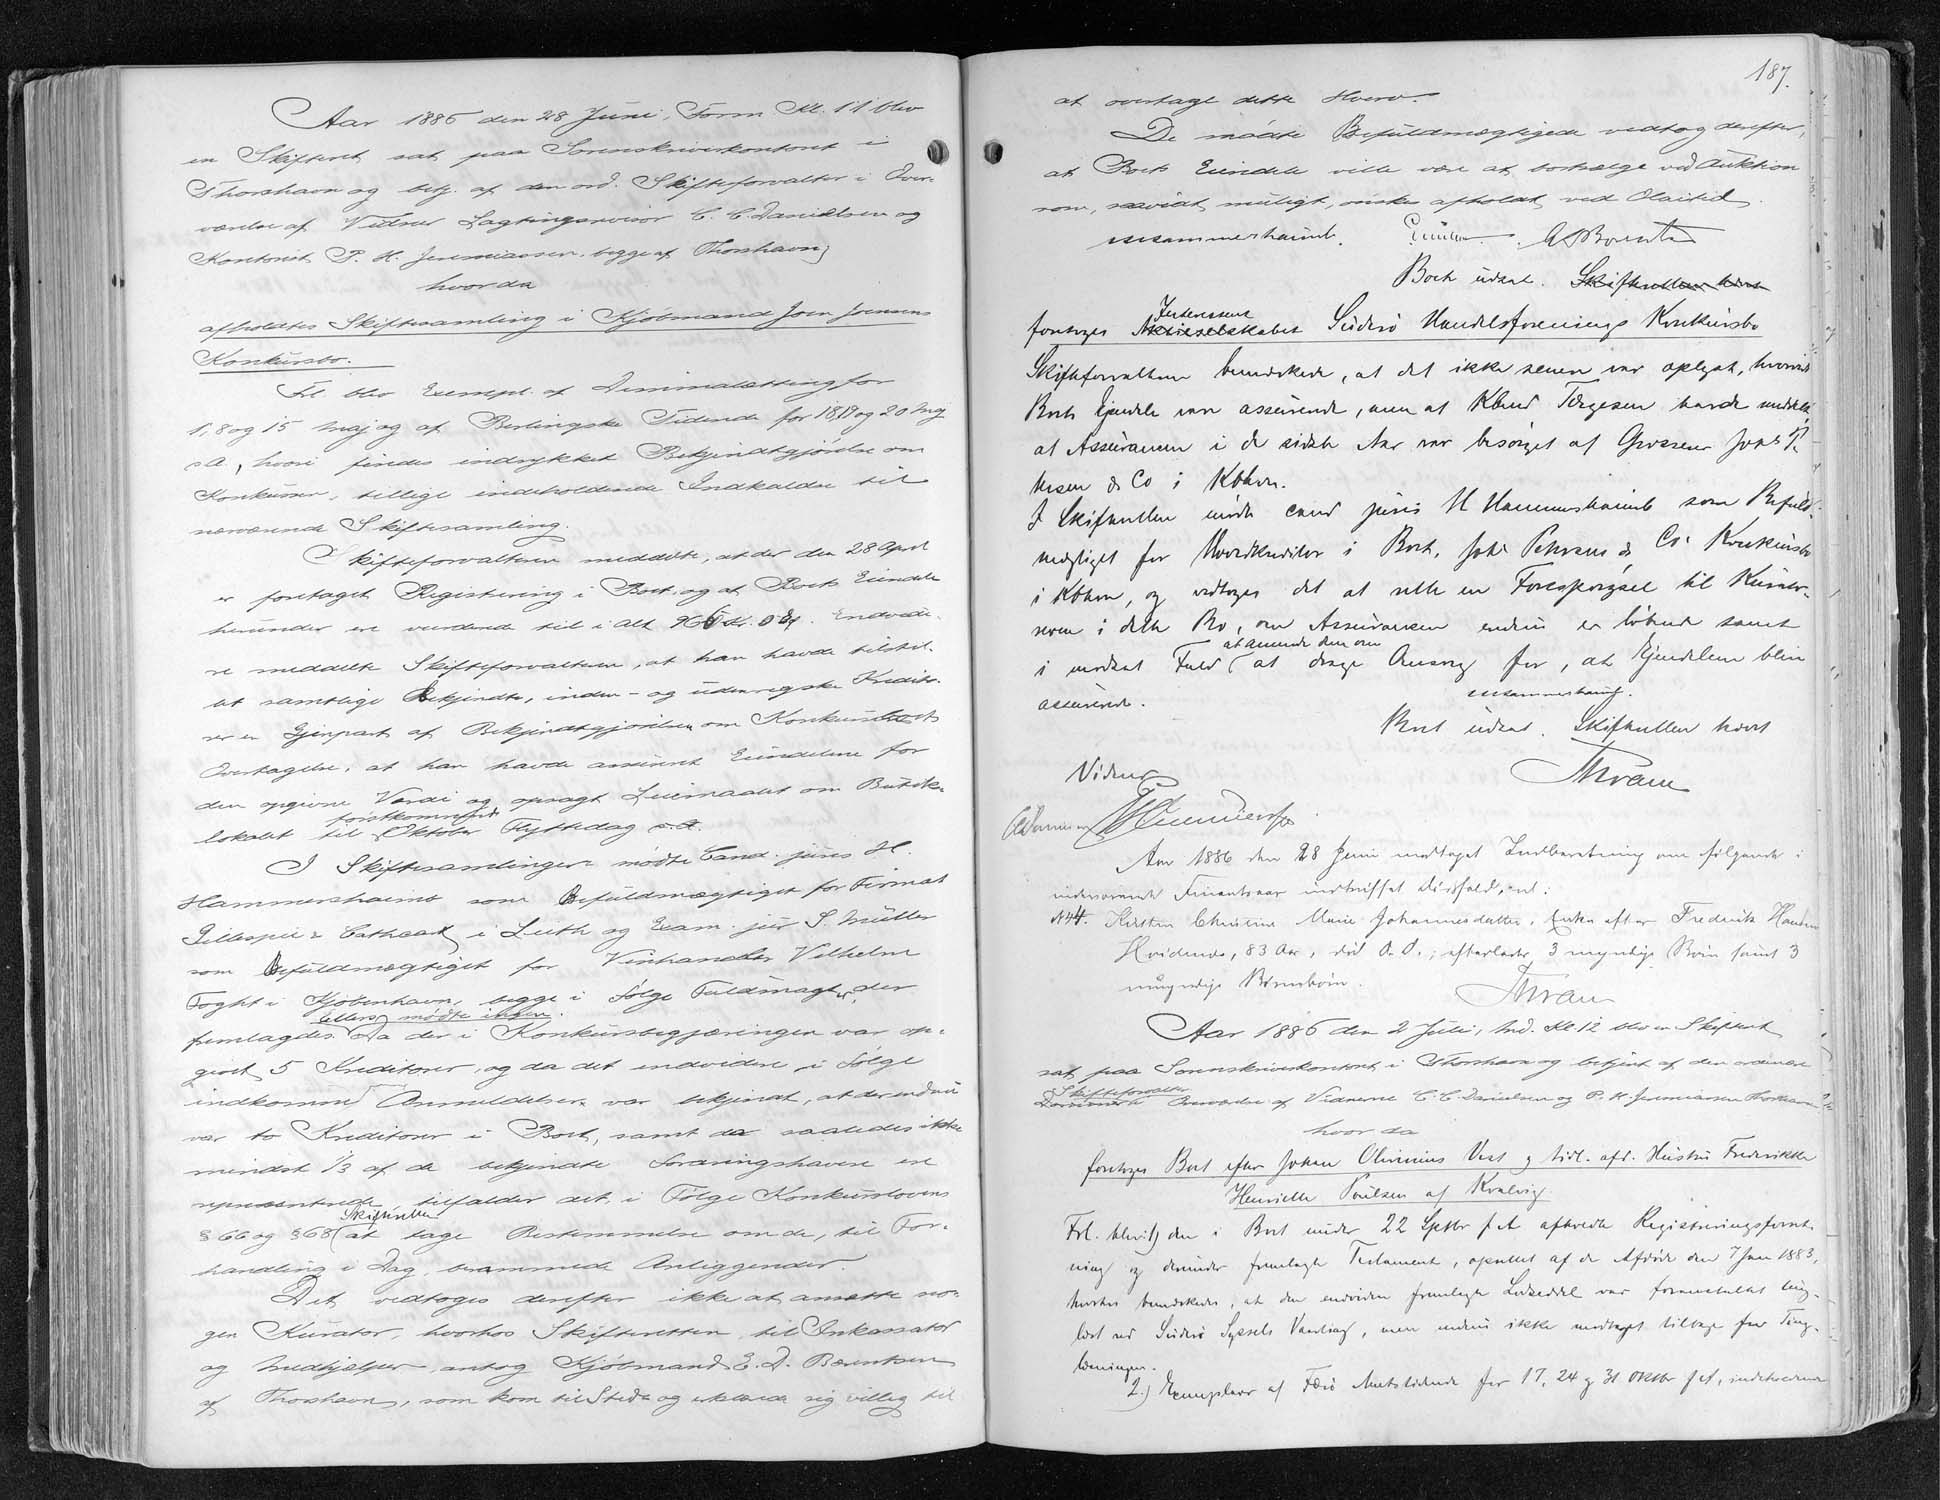 Aar 1886 den 28 Juni, Form. Kl. 11 blev
en Skifteret sat paa Sorenskriverkontoret i
Thorshavn og betj. af den ord. Skifteforvalter i Over-
værelse af Vidner Lagtingsrevisor C. C. Danielsen og
Kontorist P. H. Jeremiassen, begge af Thorshavn,
hvor da
afholdtes Skiftesamling i Kjøbmand Joen Joensens
Konkursbo.
Frl. blev Exempl. af Dimmalætting for
1, 8 og 15 Maj og af Berlingske Tidende for 18, 19 og 20 Maj
s.A., hvori findes indrykket Bekjendtgjørelse om
Konkursen, tillige indeholdende Indkaldse til
nærværende Skiftesamling.
Skifteforvalteren meddelte, at der den 28 April
er foretaget Registrering i Boet, og at Boets Eiendele
herunder ere vurderede til i alt Kr. Endvide-
re meddelte Skifteforvalteren, at han havde tilstil-
let samtlige Bekjendte, inden- og udenrigske Kredito-
rer en Gjenpart af Bekjendtgjørelsen om Konkursboets
Overtagelse, at han havde assureret Eiendelene for
den opgivne Værdi og opsagt Leiemaalet om Butiks-
lokalet til førstkommende Oktober Flyttedag s.A.
I Skiftesamlingen mødte Cand. juris H.
Hammershaimb som Befuldmægtiget for Firmaet
Gillespie & Cathcart i Leith og Exam. jur S. Müller
som Befuldmægtiget for Vinhandler Vilhelm
Foght i Kjøbenhavn, begge i Følge Fuldmagter, der
fremlagdes. Ellers mødte ingen. Da der i Konkursbegjæringen var op-
givet 5 Kreditorer, og da det endvidere i Følge
indkomne Anmeldelser var bekjendt, at der endnu
var to Kreditorer i Boet, samt da saaledes ikke
mindst 1/3 af de bekjendte Fordringshavere ere
repræsenterede tilfalder det i Følge Konkurslovens
§ 66 og § 68 Skifteretten at tage Bestemmelse om de, til For-
handling i Dag, berammede Anliggender.
Det vedtoges derefter ikke at ansætte no-
gen Kurator, hvorhos Skifteretten til Inkassator
og Medhjælper antog Kjøbmand E. D. Bærentsen
af Thorshavn, som kom til Stede og erklærede sig villig til
187.
at overtage dette Hverv.
De mødte Befuldmægtigede vedtog derefter,
at Boets Eiendele ville være at bortsælge ved Auktion
som, saavidt muligt, ønskes afholdt ved Olaitid.
Hammershaimb.
Boet udsat. Skifteretten hævet
foretoges Interessentskabet Suderø Handelsforenings Konkursbo
Skifteforvalteren bemærkede, at det ikke senere var oplyst, hvorvidt
Boets Ejendele vare assurerede, men at Kbmd Tærgesen havde meddelt,
at Assurancen i de sidste Aar var besørget af Grosserer
& Co i Kbhvn.
I Skifteretten mødte cand juris H Hammershaimb som Befuld-
mægtiget for Hovedkreditor i Boet, Joh. Petersens & Co. Konkursbo
i Kbhvn, og vedtoges det at rette en Forespørgsel til Kurato-
rerne i dette Bo, om Assurancen endnu er løbende samt
i modsat Fald at anmode dem om at drage Omsorg for, at Ejendelene bliver
assurerede.
Hammershaimb.
Boet udsat. Skifteretten hævet
Vidner
CCDanielsen
Aar 1886 den 28 Juni modtaget Indberetning om følgende i
indeværende Finantsaar indtruffet Dødsfald, nl:
No 44. Kirsten Christine Marie Johannesdatter, Enke efter Frederik Hansen
Hvidenæs, 83 Aar, død D. D.; efterlader 3 myndige Børn samt 3
umyndige Børnebørn.
Aar 1886 den 2 Juli, Md. Kl 12 blev en Skifteret
sat paa Sorenskriverkontoret i Thorshavn og betjent af den ordinære
Skifteforvalter Overværelse af Vidnerne C. C. Danielsen og P. H. Jeremiassen Thorshavn
hvor da
foretoges Boet efter Johan Olivinius Vest og tidl. afd. Hustru Frederikke
Henriette Poulsen af Kvalvig.
Frl. blev 1) den i Boet under 22 Septbr f.A afholdte Registreringsforret-
ning og derunder fremlagte Testamente, oprettet af de Afdøde den 7 Jan 1883,
hvorhos bemærkedes, at den endvidere fremlagte Lodseddel var foranstaltet ting-
læst ved Suderø Syssels Vaarting, men endnu ikke modtaget tilbage fra Ting-
læsningen.
2.) Exemplarer af Færø Amtstidende for 17, 24 og 31 Oktbr f.A, indeholdende